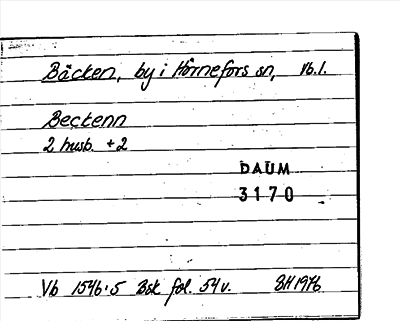 Bäcken, by i Hörnefors sn, Vb.l.
Beckenn
2 husb. +2
DAUM
3170
Vb 1546:5 Bsk fol. 54v. SH 1976